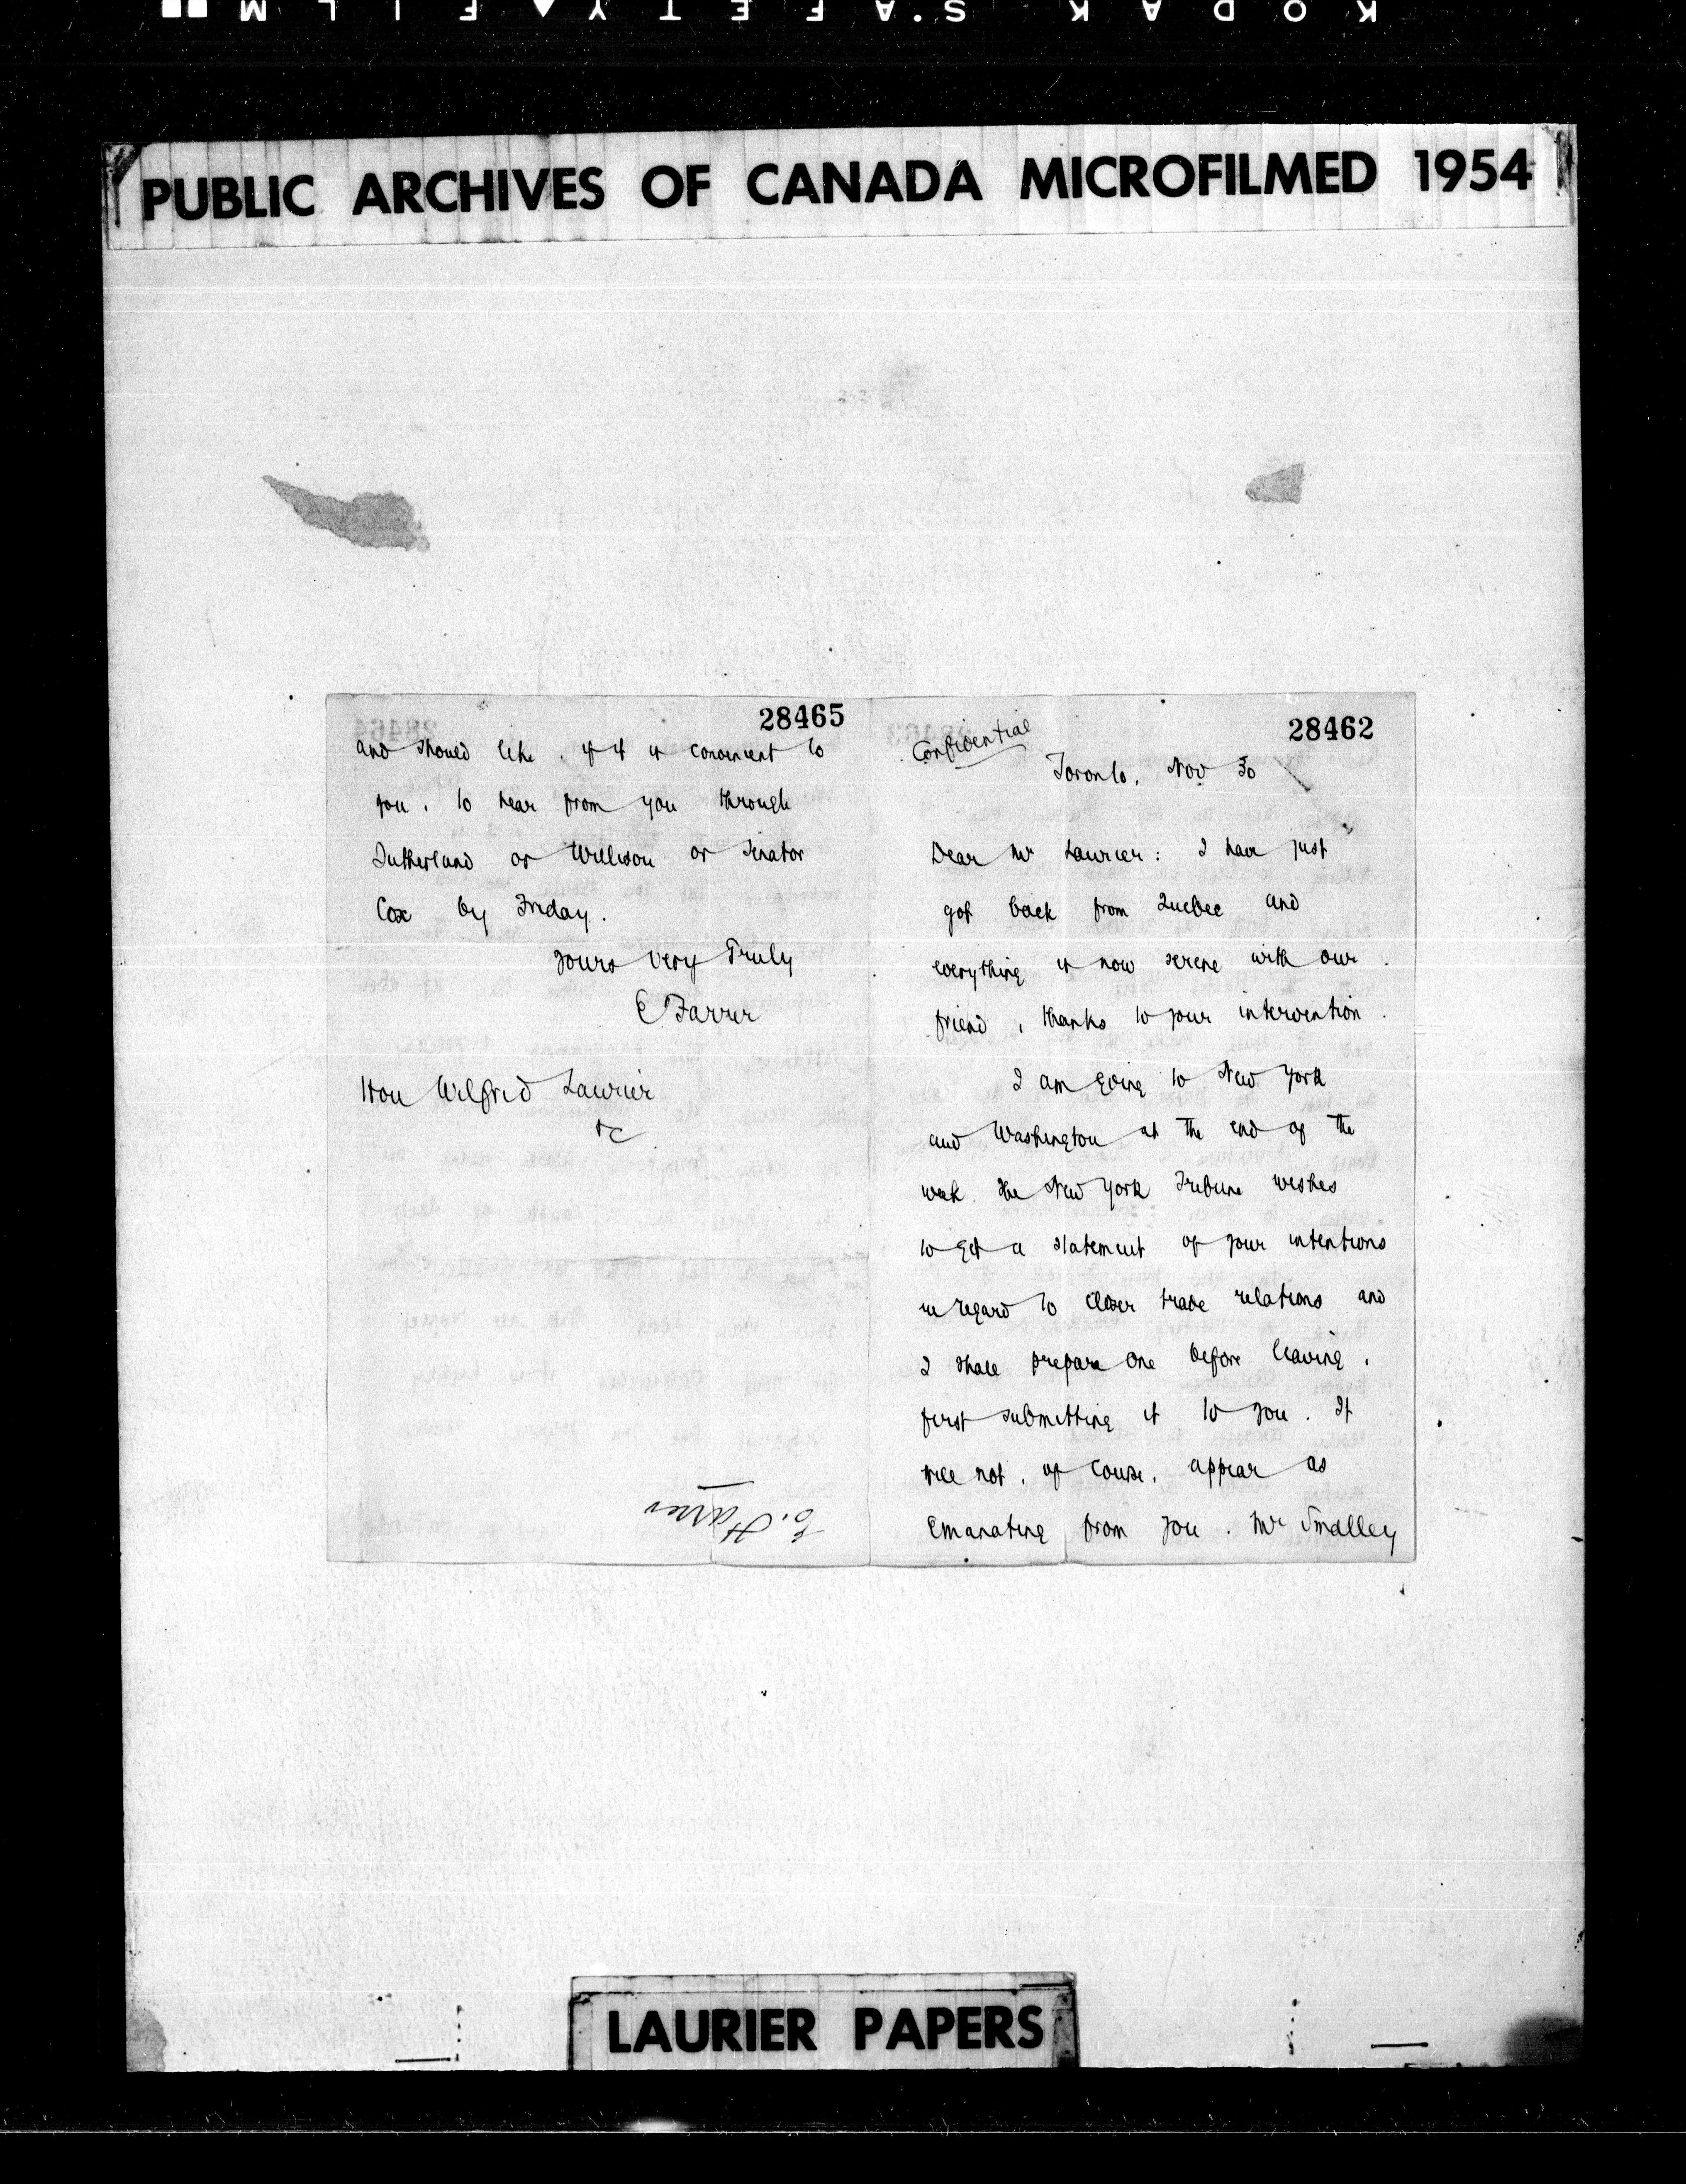 KODAK S.AFETY FILM
PUBLIC ARCHIVES OF CANADA MICROFILMED 1954
28462
Confidential
Toronto, Nov 30
Dear Mr Laurier: I have just
got back from Quebec and
everything is now serene with our
friend, thanks to your intervention.
I am going to New York
and Washington at the end of the
week. The New York Tribune wishes
to get a statement of your intentions
in regard to closer trade relations and
I shall prepare one before leaving,
first submitting it to you. It
will not, of course, appear as
emanating from you. Mr Smalley
28465
and should like, if it is convenient to
you, to hear from you through
Sutherland or Willison or Senator
Cox by Friday.
Yours very Truly
E Farrer
Hon Wilfrid Laurier
&c
E. Farrer
28464
28463
LAURIER PAPERS